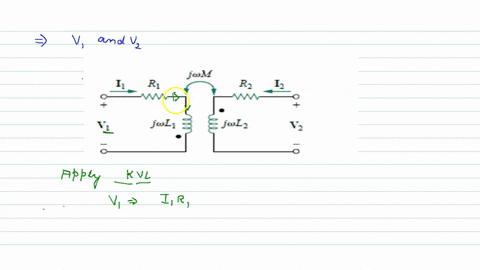 ⇒ V₁ and V₂
jωM
I₁ R₁ R₂ I₂
+ +
V₁ jωL₁ jωL₂ V₂
− −
Apply KVL
V₁ ⇒ I₁R₁